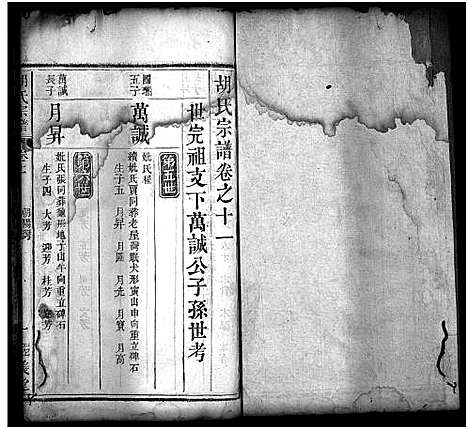 胡氏宗譜卷之十一
世完祖支下萬誠公子孫世考
第五世
國
五子
萬誠
妣氏程
續妣氏賈同葬老屋灣獸犬形寅山申向重立碑石
生子五 月昇 月 月光 月寶 月高
第六世
萬誠
長子
月昇
妣氏張同葬 形地丁山午向重立碑石
生子四 大芳 迎芳 桂芳 芳
胡氏宗譜
卷之
朝陽